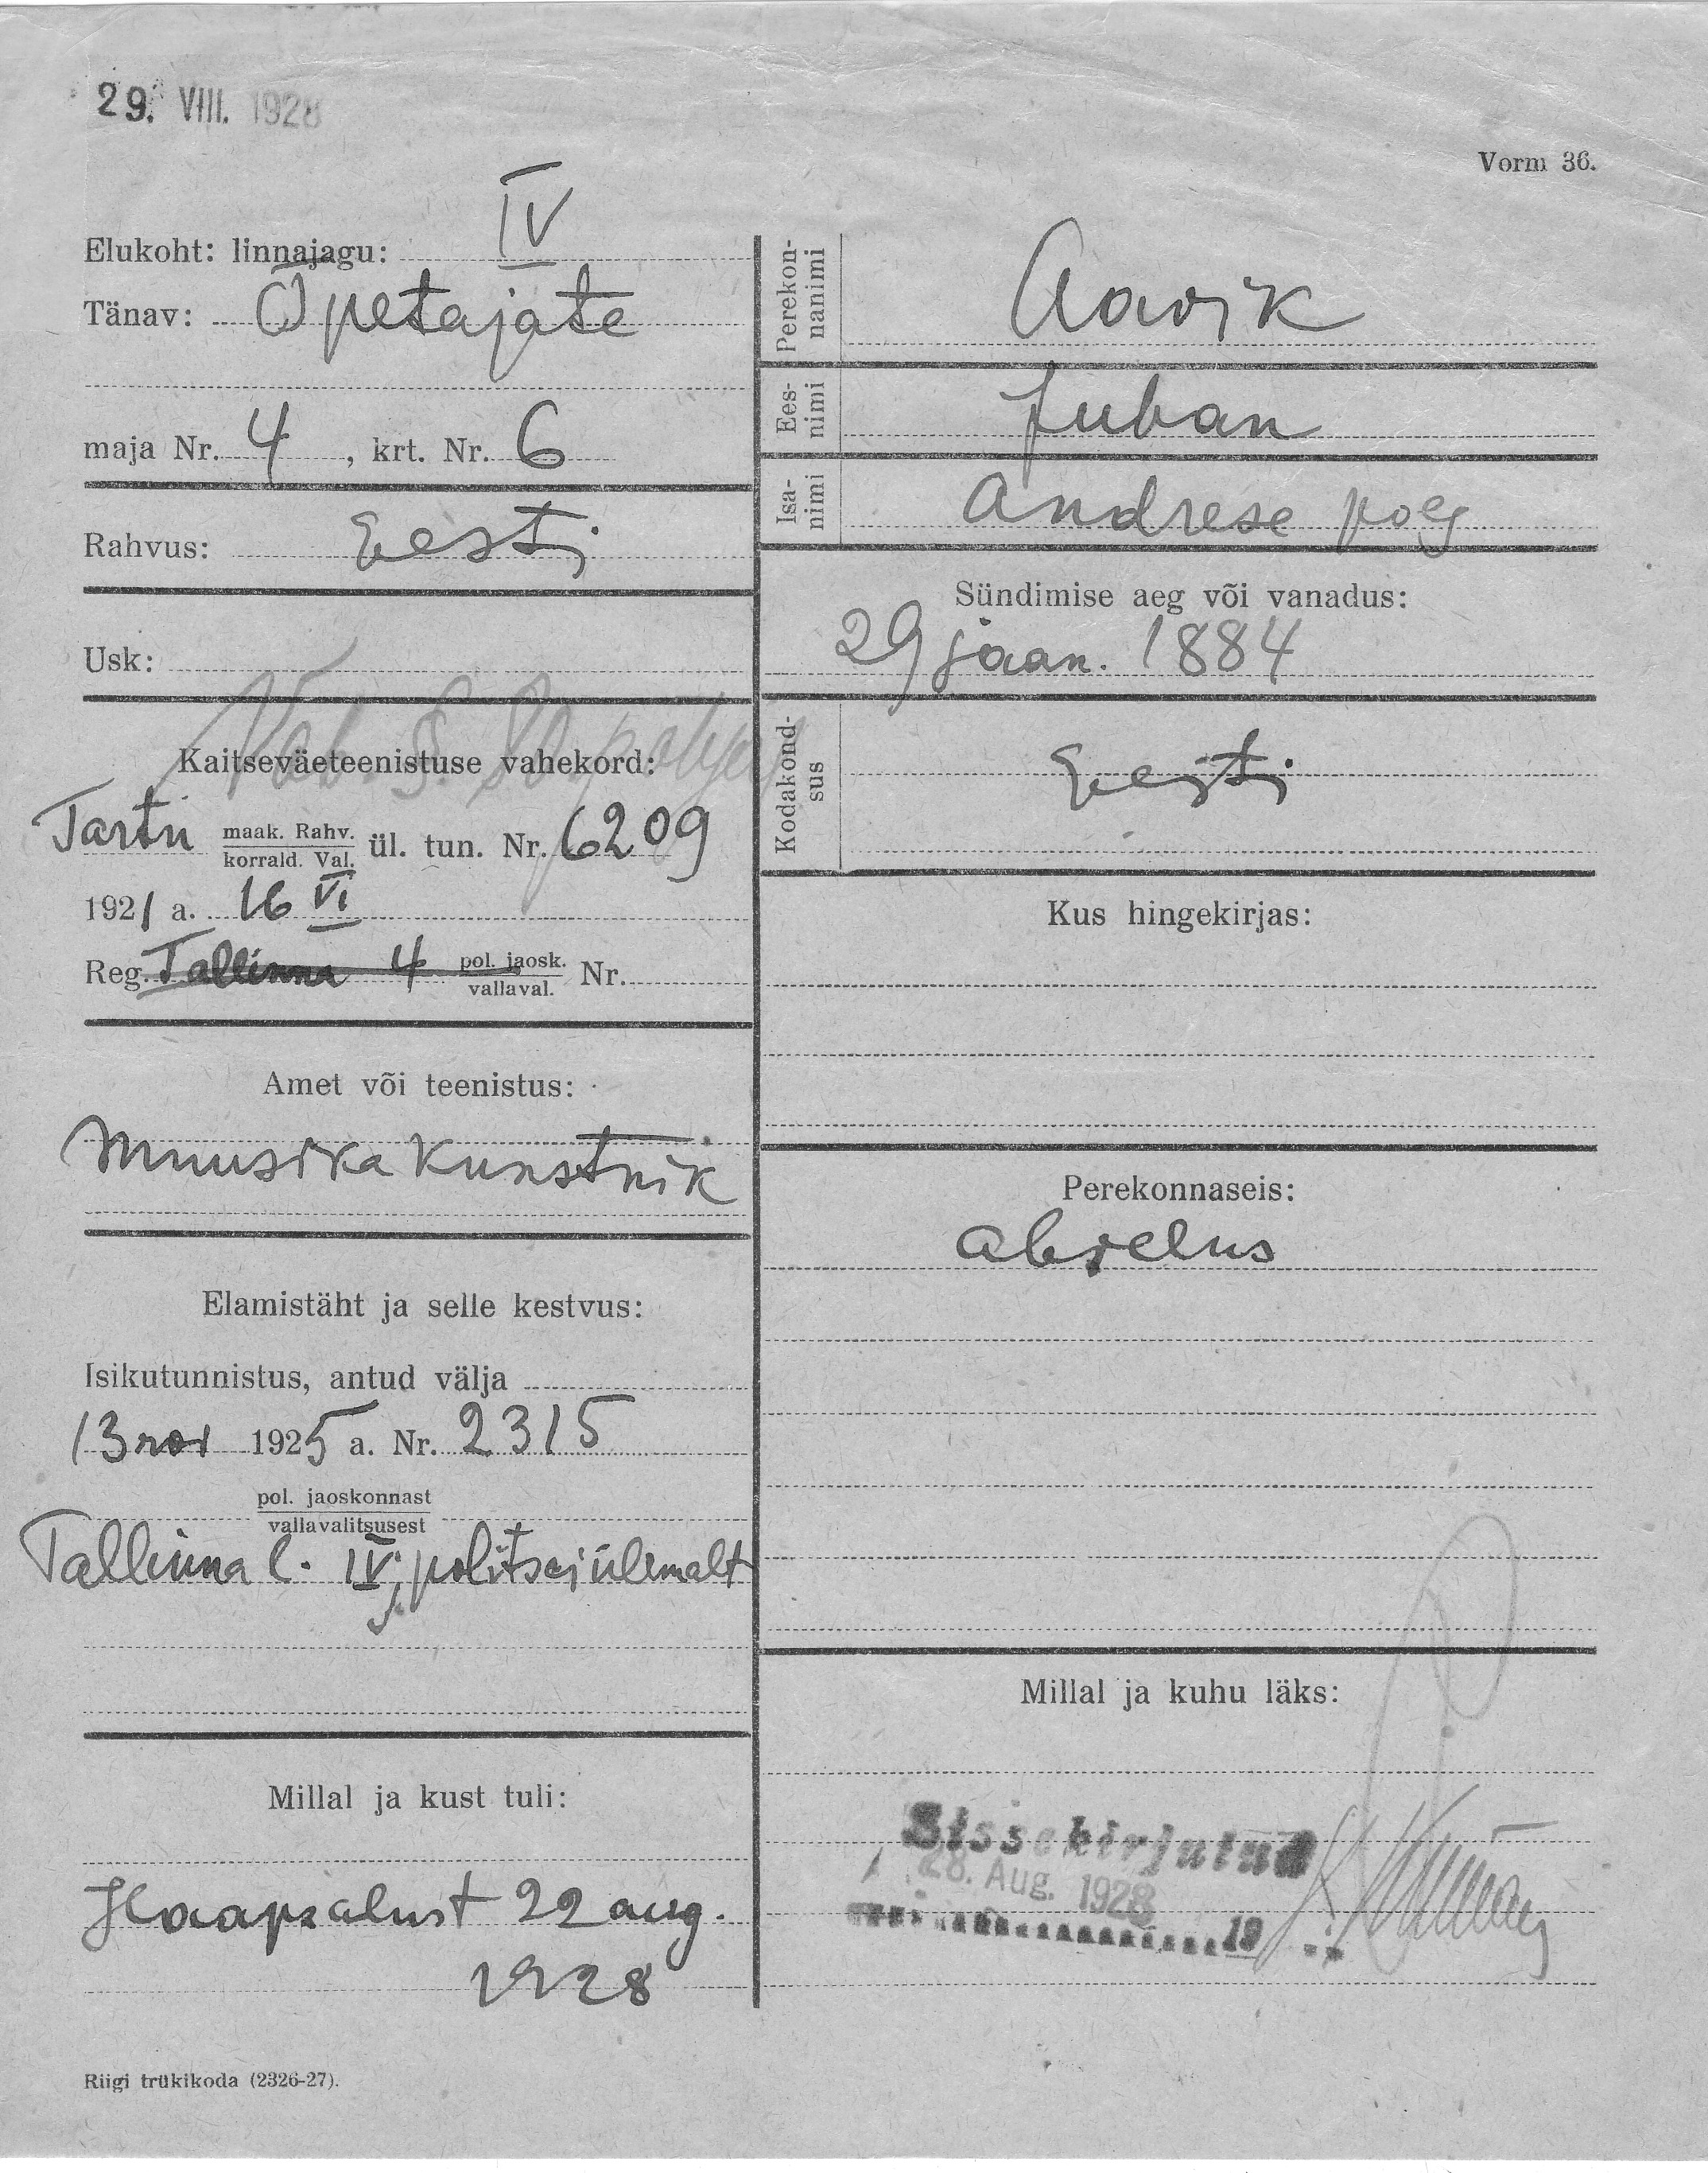 29. VIII. 1928
Vorm 36.
Elukoht: linnajagu: IV
Tänav: Õpetajate
maja Nr. 4, krt. Nr. 6
Rahvus: Eesti
Usk:
Kaitseväeteenistuse vahekord:
Tartu maak. Rahv. korrald. Val. ül. tun. Nr. 6209
1921 a. 16 VI
Reg. Tallinna 4 pol. jaosk. vallaval. Nr.
Amet või teenistus:
Muusika kunstnik
Elamistäht ja selle kestvus:
Isikutunnistus, antud välja
13 nov 1925 a. Nr. 2315
pol. jaoskonnast
vallavalitsusest
Tallinna l. IV j. politseiülemalt
Millal ja kust tuli:
Haapsalust 22 aug.
1928
Riigi trükikoda (2326-27).
Perekonnanimi Aavik
Eesnimi Juhan
Isanimi Andrese poeg
Sündimise aeg või vanadus:
29 jaan. 1884
Kodakondsus Eesti
Kus hingekirjas:
Perekonnaseis:
abielus
Millal ja kuhu läks:
Sissekirjutud
28. Aug. 1928
19